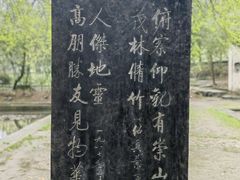 俯察仰觀有崇山
茂林脩竹
人傑地靈
高朋勝友見物華